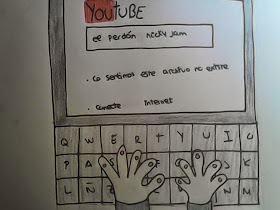 YOUTUBE
el perdón nicky jam
· Lo sentimos este archivo no existe
· Conecte internet
Q W E R T Y U I O
P A J K
L Ñ N M